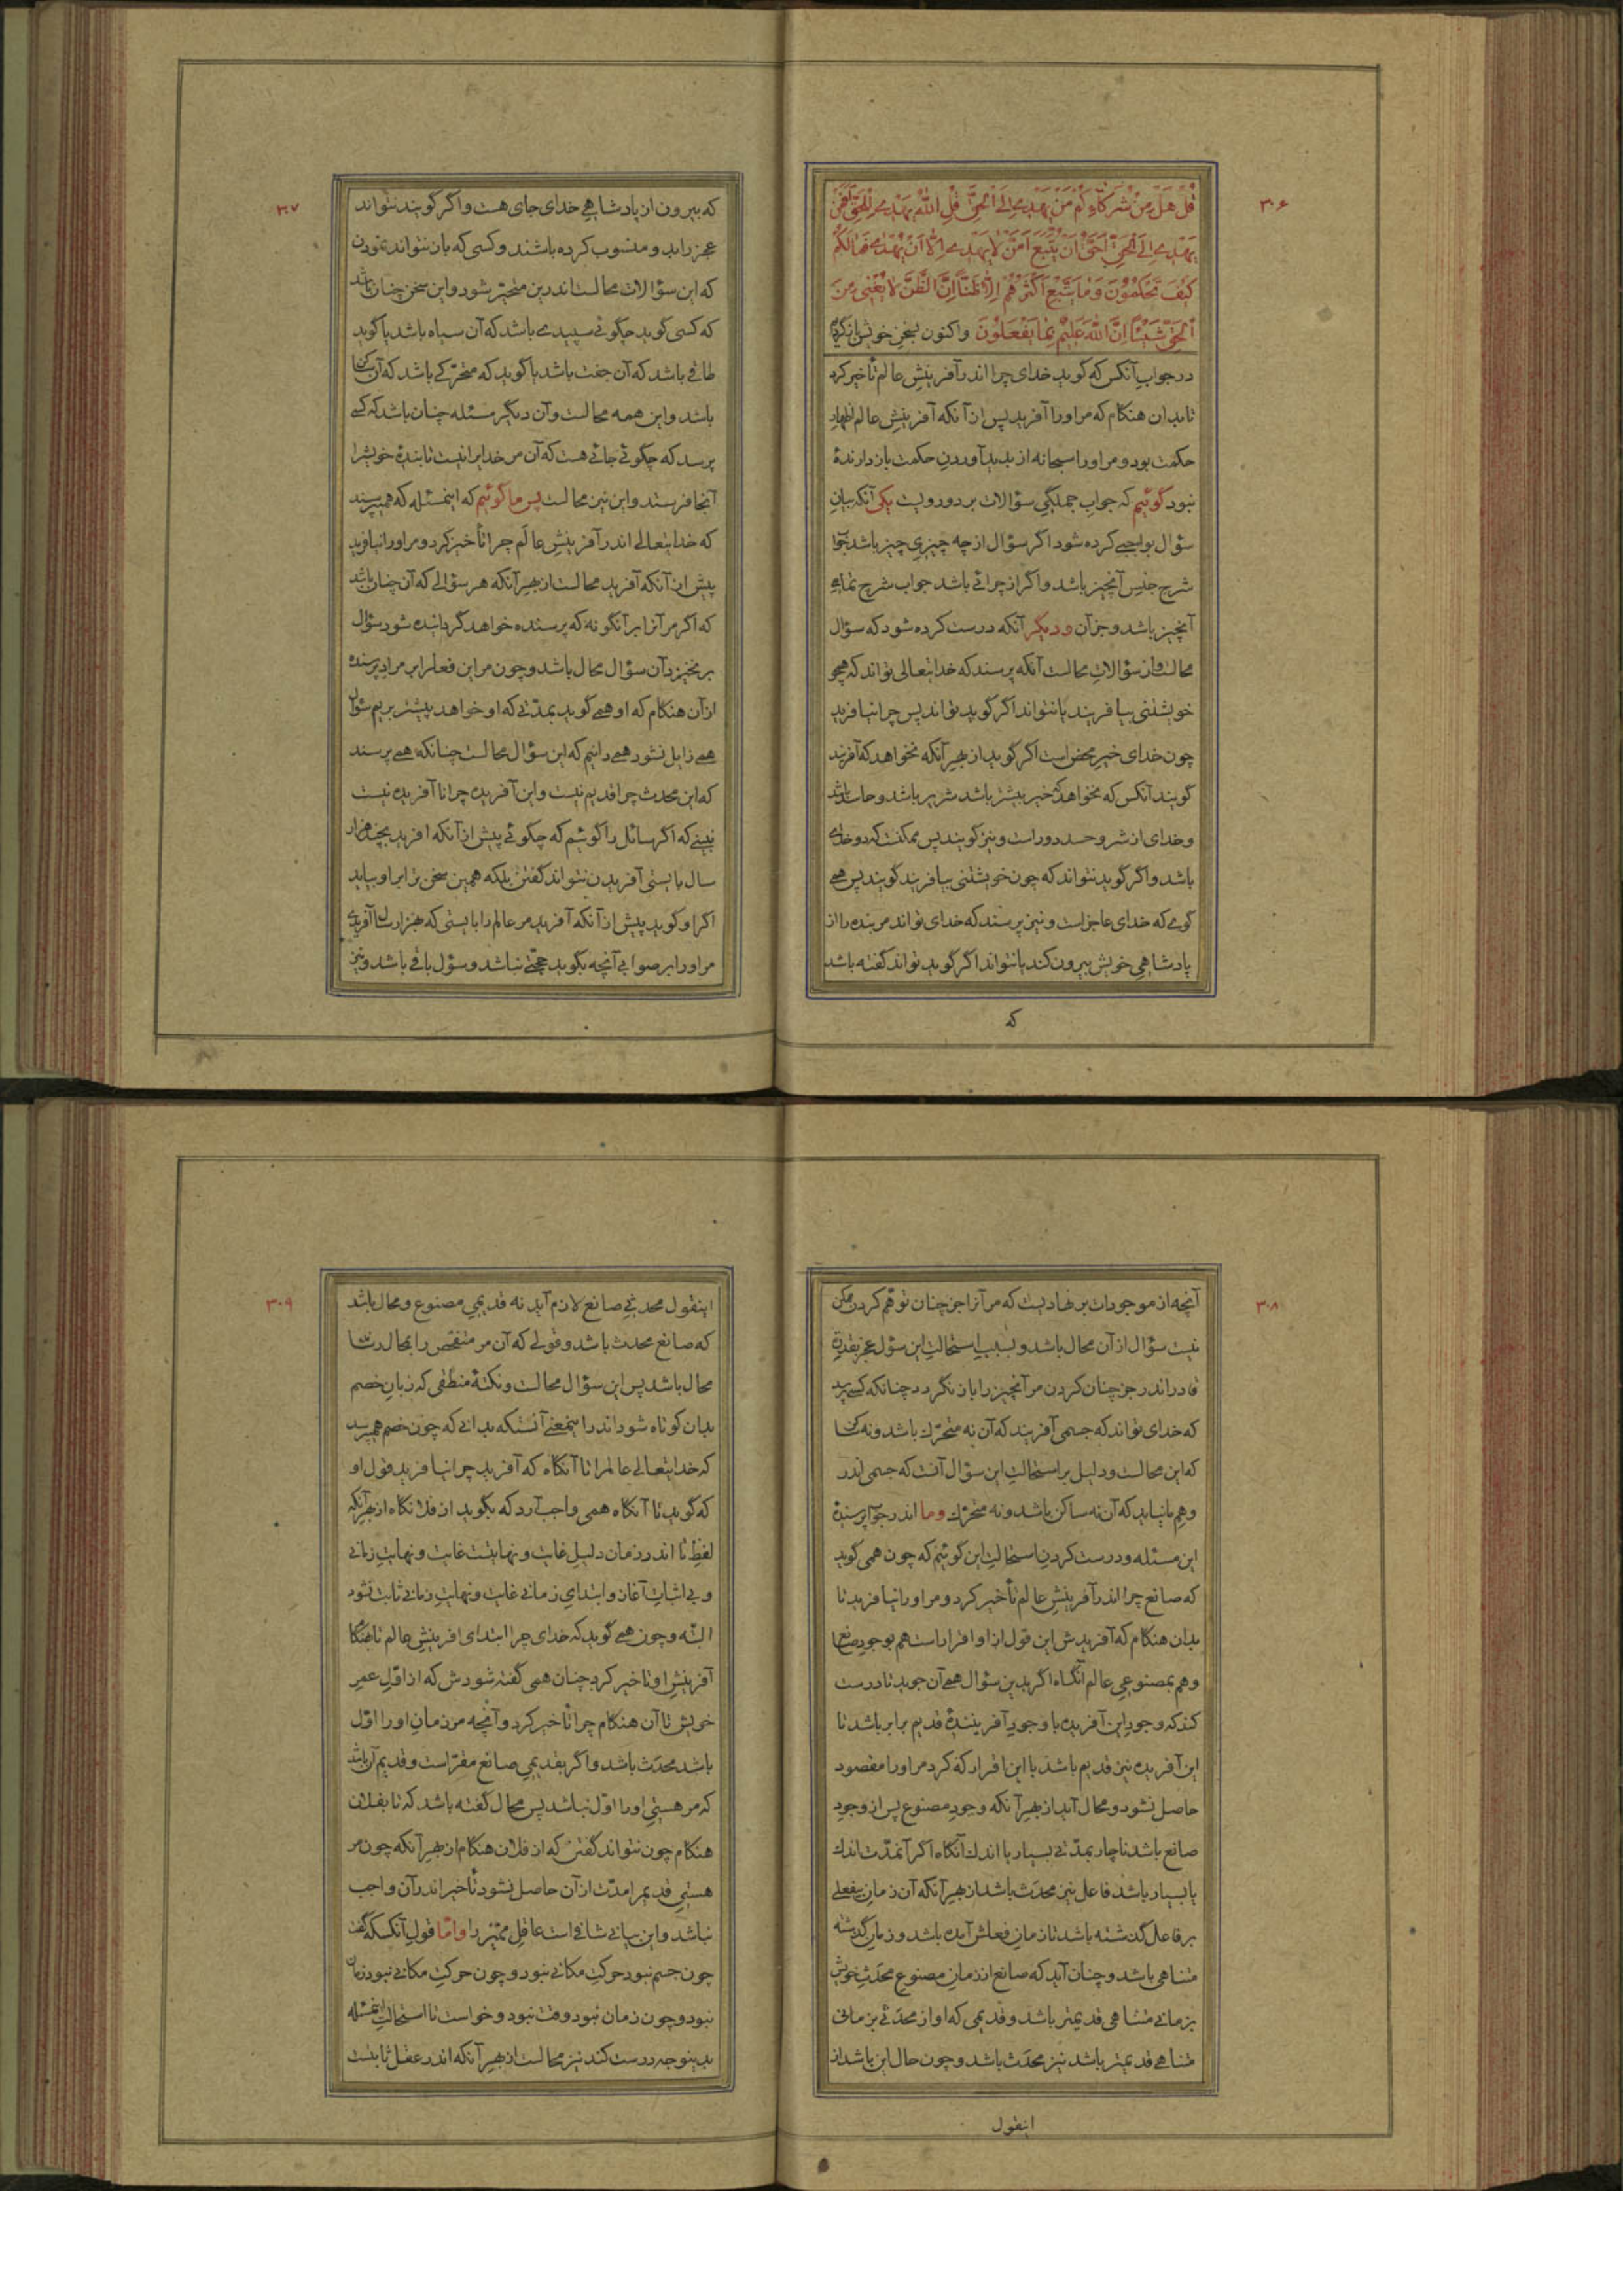 ۳۰۶
قُلْ هَلْ مِنْ شُرَكَاءِكُمْ مَنْ يَهْدِي اِلَى الْحَقِّ قُلِ اللّٰهُ يَهْدِي لِلْحَقِّ اَفَمَنْ
يَهْدِي اِلَى الْحَقِّ اَحَقُّ اَنْ يُتَّبَعَ اَمَّنْ لَا يَهِدِّي اِلَّا اَنْ يُهْدٰى فَمَا لَكُمْ
كَيْفَ تَحْكُمُوْنَ وَمَا يَتَّبِعُ اَكْثَرُهُمْ اِلَّا ظَنًّا اِنَّ الظَّنَّ لَا يُغْنِي مِنَ
الْحَقِّ شَيْئًا اِنَّ اللّٰهَ عَلِيْمٌ بِمَا يَفْعَلُوْنَ واکنون بسخن خویش بازگردیم
در جواب آنکس که گوید خدای چرا اندر آفرینش عالم تأخیر کرد
تا بدان هنکام که مر اورا آفرید پس از آنکه آفرینش عالم اظهار
حکمت بود و مر اورا سبحانه از پدید آوردن حکمت باز دارندهٔ
نبود گوئیم که جواب جملگی سؤالات بر دو رویست یکی آنکه بیان
سؤال بواجبی کرده شود اگر سؤال از چه چیزی چیز باشد جواب
شرح جنس آنچیز باشد و اگر از چرائی باشد جواب شرح تمامی
آنچیز باشد و جز آن و دیگر آنکه درست کرده شود که سؤال
محالست و از سؤالات محالست آنکه پرسند که خدایتعالی تواند که همچو
خویشتنی بیافریند یا نتواند اگر گوید تواند پس چرا نیافرید
چون خدای خیر محض است اگر گوید از بهر آنکه نخواهد که آفریند
گویند آنکس که نخواهد که خیر بیشتر باشد شریر باشد و حاسد باشد
و خدای از شر و حسد دور است و نیز گویند پس ممکنست که دو خدای
باشد و اگر گوید نتواند که چون خویشتنی بیافریند گویند پس همی
گوئی که خدای عاجز است و نیز پرسند که خدای تواند مر بنده را از
پادشاهی خویش بیرون کند یا نتواند اگر گوید تواند گفته باشد
که
۳۰۷
که بیرون از پادشاهی خدای جای هست و اگر گویند نتواند
عجز را بدو منسوب کرده باشند و کسی که باز نتواند نمودن
که این سؤالات محالست اندرین متحیّر شود و این سخن چنان باشد
که کسی گوید چگوئی سپیدی باشد که آن سیاه باشد یا گوید
طاقی باشد که آن جفت باشد یا گوید که متحرّکی باشد که آن ساکن
باشد و این همه محالست و آن دیگر مسئله چنان باشد که کسی
پرسد که چگوئی جائی هست که آن مر خدایرا نیست تا بندهٔ خویشرا
آنجا فرستد و این نیز محالست پس ما گوئیم که اینمسئله که همیپرسند
که خدایتعالی اندر آفرینش عالم چرا تأخیر کرد و مر اورا نیافرید
پیش از آنکه آفرید محالست از بهر آنکه هر سؤالی که آن چنان باشد
که اگر مر آنرا بر آنگونه که پرسنده خواهد گردانیده شود سؤال
بر نخیزد آن سؤال محال باشد و چون مر این فعل را بر مراد پرسنده
از آن هنکام که او همی گوید بمدّتی که او خواهد پیشتر بریم سؤال
همی زایل نشود همی دانیم که این سؤال محالست چنانکه همی پرسند
که این محدث چرا قدیم نیست و این آفریده چرا ناآفریده نیست
نبینی که اگر سائل را گوئیم که چگوئی پیش از آنکه افرید بچند هزار
سال بایستی آفریدن نتواند گفتن بلکه همین سخن برابر او بیاید
اگر او گوید پیش از آنکه آفرید مر عالم را بایستی که هزار سال آفریدی
مر اورا بر صوابی آنچه بگوید حجّتی نباشد و سؤل باقی باشد و نیز
۳۰۸
آنچه از موجودات بر نهادیست که مر آنرا جز چنان توهّم کردن ممکن
نیست سؤال از آن محال باشد و بسبب استحالت این سؤل عجز بقدرة
قادر اندر جز چنان کردن مر آنچیز را باز نگردد چنانکه کسی پرسد
که خدای تواند که جسمی آفریند که آن نه متحرّك باشد و نه ساکن
که این محالست و دلیل بر استحالت این سؤال آنست که جسمی اندر
وهم نیاید که آن نه ساکن باشد و نه متحرّك و ما اندر جواب پرسندهٔ
این مسئله و درست کردن استحالت این گوئیم که چون همی گوید
که صانع چرا اندر آفرینش عالم تأخیر کرد و مر اورا نیافرید تا
بدان هنکام که آفریدش این قول از او اقرار است هم بوجود صانع
و هم بمصنوعی عالم آنگاه اگر بدین سؤال همی آن جوید تا درست
کند که وجود این آفریده با وجود آفرینندهٔ قدیم برابر باشد تا
این آفریده نیز قدیم باشد با این اقرار که کرد مر اورا مقصود
حاصل نشود و محال آید از بهر آنکه وجود مصنوع پس از وجود
صانع باشد ناچار بمدّتی بسیار یا اندك آنگاه اگر آنمدّت اندك
یا بسیار باشد فاعل نیز محدث باشد از بهر آنکه آن زمان بیفعلی
بر فاعل گذشته باشد تا زمان فعلش آمده باشد و زمان گذشته
متناهی باشد و چنان آید که صانع از زمان مصنوع محدث خویش
بزمانی متناهی قدیمتر باشد و قدیمی که او از محدثی بزمانی
متناهی قدیمتر باشد نیز محدث باشد و چون حال این باشد از
اینقول
۳۰۹
اینقول محدثی صانع لازم آید نه قدیمی مصنوع و محال باشد
که صانع محدث باشد و قولی که آن مر متفحّص را بمحال رساند
محال باشد پس این سؤال محالست و نکتهٔ منطقی که زبان خصم
بدان کوتاه شود اندر اینمعنی آنستکه بدانی که چون خصم همیپرسد
که خدایتعالی عالمرا تا آنگاه که آفرید چرا نیافرید قول او
که گوید تا آنگاه همی واجب آرد که بگوید از فلان گاه از بهر آنکه
لفظ تا اندر زمان دلیل غایت و نهایتست غایت و نهایت زمانی
و بی اثبات آغاز و ابتدای زمانی غایت و نهایت زمانی ثابت نشود
البتّه و چون همی گوید که خدای چرا ابتدای افرینش عالم تا هنگام
آفرینش او تاخیر کرد چنان همی گفته شودش که از اوّل عمر
خویش تا آن هنکام چرا تأخیر کرد و آنچه مر زمان اورا اوّل
باشد محدث باشد و اگر بقدیمی صانع مقرّ است و قدیم آن باشد
که مر هستی اورا اوّل نباشد پس محال گفته باشد که تا بفلان
هنکام چون نتواند گفتن که از فلان هنکام از بهر آنکه چون مر
هستی قدیمرا مدّت از آن حاصل نشود تأخیر اندر آن واجب
نباشد و این بیانی شافی است عاقل ممیّز را و امّا قول آنکسکه گفت
چون جسم نبود حرکت مکانی نبود و چون حرکت مکانی نبود زمان
نبود و چون زمان نبود وقت نبود و خواست تا استحالت اینمسئله
بدینوجه درست کند نیز محالست از بهر آنکه اندر عقل ثابتست